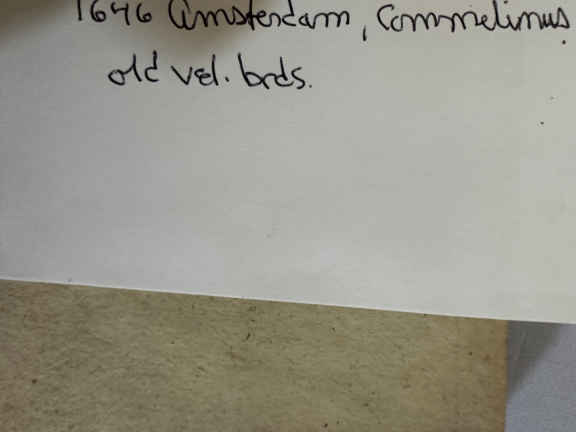 1646 Amsterdam, Commelinus
old vel. brds.